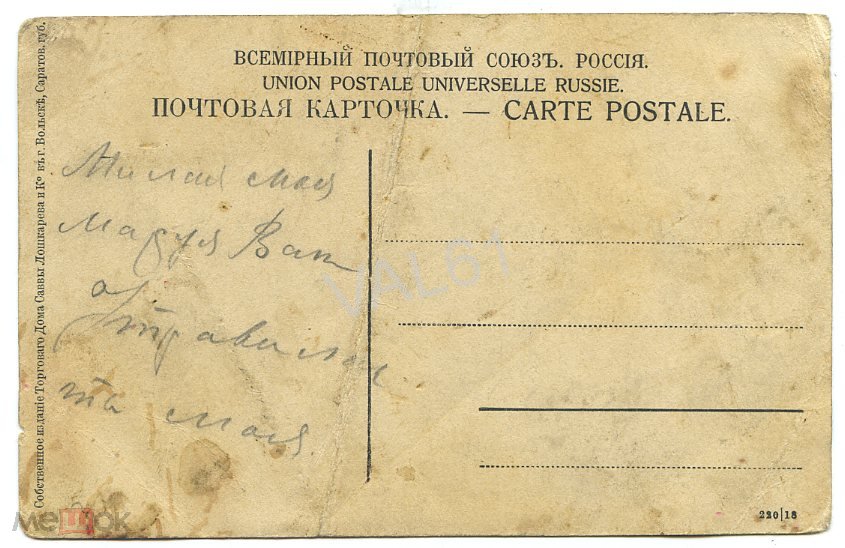 ВСЕМІРНЫЙ ПОЧТОВЫЙ СОЮЗЪ. РОССІЯ.
UNION POSTALE UNIVERSELLE RUSSIE.
ПОЧТОВАЯ КАРТОЧКА. — CARTE POSTALE.
Собственное изданіе Торговаго Дома Саввы Дошкарева и Ко въ г. Вольскѣ, Саратов. губ.
Милая моя
Маруся
моя.
VAL61
220|18
Мешок